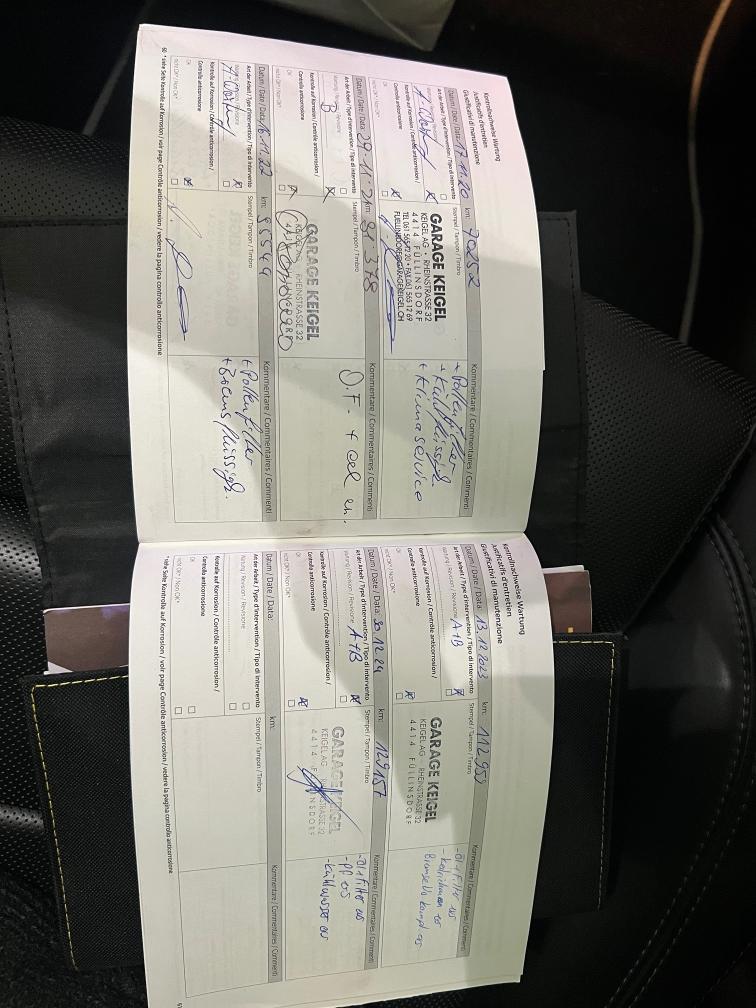 Kontrollnachweise Wartung
Justificatifs d'entretien
Giustificativi di manutenzione
Datum / Date / Data: 17.11.20 km: 70252
Art der Arbeit / Type d'intervention / Tipo di intervento Stempel / Tampon / Timbro Kommentare / Commentaires / Commenti
Wartung / Revision / Revisione
Kontrolle auf Korrosion / Contrôle anticorrosion /
Controllo anticorrosione
OK
nicht OK* / Non OK*
GARAGE KEIGEL
KEIGEL AG • RHEINSTRASSE 32
4414 FÜLLINSDORF
+ Pollenfilter
+ Klimaservice
Datum / Date / Data: km: 81 378
Art der Arbeit / Type d'intervention / Tipo di intervento Stempel / Tampon / Timbro Kommentare / Commentaires / Commenti
Wartung / Revision / Revisione
Kontrolle auf Korrosion / Contrôle anticorrosion /
Controllo anticorrosione
OK
nicht OK* / Non OK*
GARAGE KEIGEL
KEIGEL AG • RHEINSTRASSE 32
Datum / Date / Data: 16.11.22 km: 95549
Art der Arbeit / Type d'intervention / Tipo di intervento Stempel / Tampon / Timbro Kommentare / Commentaires / Commenti
Kontrolle auf Korrosion / Contrôle anticorrosion /
Controllo anticorrosione
OK
nicht OK* / Non OK*
+ Pollenfilter
+ Bremsflüssigk.
60 * siehe Seite Kontrolle auf Korrosion / voir page Contrôle anticorrosion / vedere la pagina controllo anticorrosione
Kontrollnachweise Wartung
Justificatifs d'entretien
Giustificativi di manutenzione
Datum / Date / Data: 13.12.2023 km: 112 959
Art der Arbeit / Type d'intervention / Tipo di intervento Stempel / Tampon / Timbro Kommentare / Commentaires / Commenti
Wartung / Revision / Revisione A+B
Kontrolle auf Korrosion / Contrôle anticorrosion /
Controllo anticorrosione
OK
nicht OK* / Non OK*
GARAGE KEIGEL
KEIGEL AG • RHEINSTRASSE 32
4414 FÜLLINSDORF
Datum / Date / Data: 30.12.24 km: 129157
Art der Arbeit / Type d'intervention / Tipo di intervento Stempel / Tampon / Timbro Kommentare / Commentaires / Commenti
Wartung / Revision / Revisione A+B
Kontrolle auf Korrosion / Contrôle anticorrosion /
Controllo anticorrosione
OK
nicht OK* / Non OK*
GARAGE KEIGEL
Datum / Date / Data: km:
Art der Arbeit / Type d'intervention / Tipo di intervento Stempel / Tampon / Timbro Kommentare / Commentaires / Commenti
Wartung / Revision / Revisione
Kontrolle auf Korrosion / Contrôle anticorrosion /
Controllo anticorrosione
OK
nicht OK* / Non OK*
* siehe Seite Kontrolle auf Korrosion / voir page Contrôle anticorrosion / vedere la pagina controllo anticorrosione